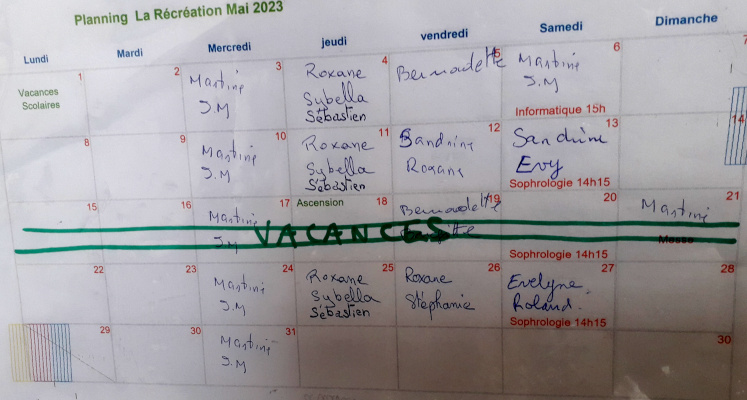 Planning La Récréation Mai 2023
Lundi Mardi Mercredi jeudi vendredi Samedi Dimanche
1 2 3 4 5 6 7
Vacances Martine Roxane Bernadette Martine
Scolaires J.M Sybella J.M
Sébastien
Informatique 15h
8 9 10 11 12 13 14
Martine Roxane Sandrine Sandrine
J.M Sybella Roxane Evy
Sébastien
Sophrologie 14h15
15 16 17 Ascension 18 19 20 21
Martine Bernadette Martine
J.M VACANCES Messe
Sophrologie 14h15
22 23 24 25 26 27 28
Martine Roxane Roxane Evelyne
J.M Sybella Stéphanie Roland.
Sébastien
Sophrologie 14h15
29 30 31 30
Martine
J.M